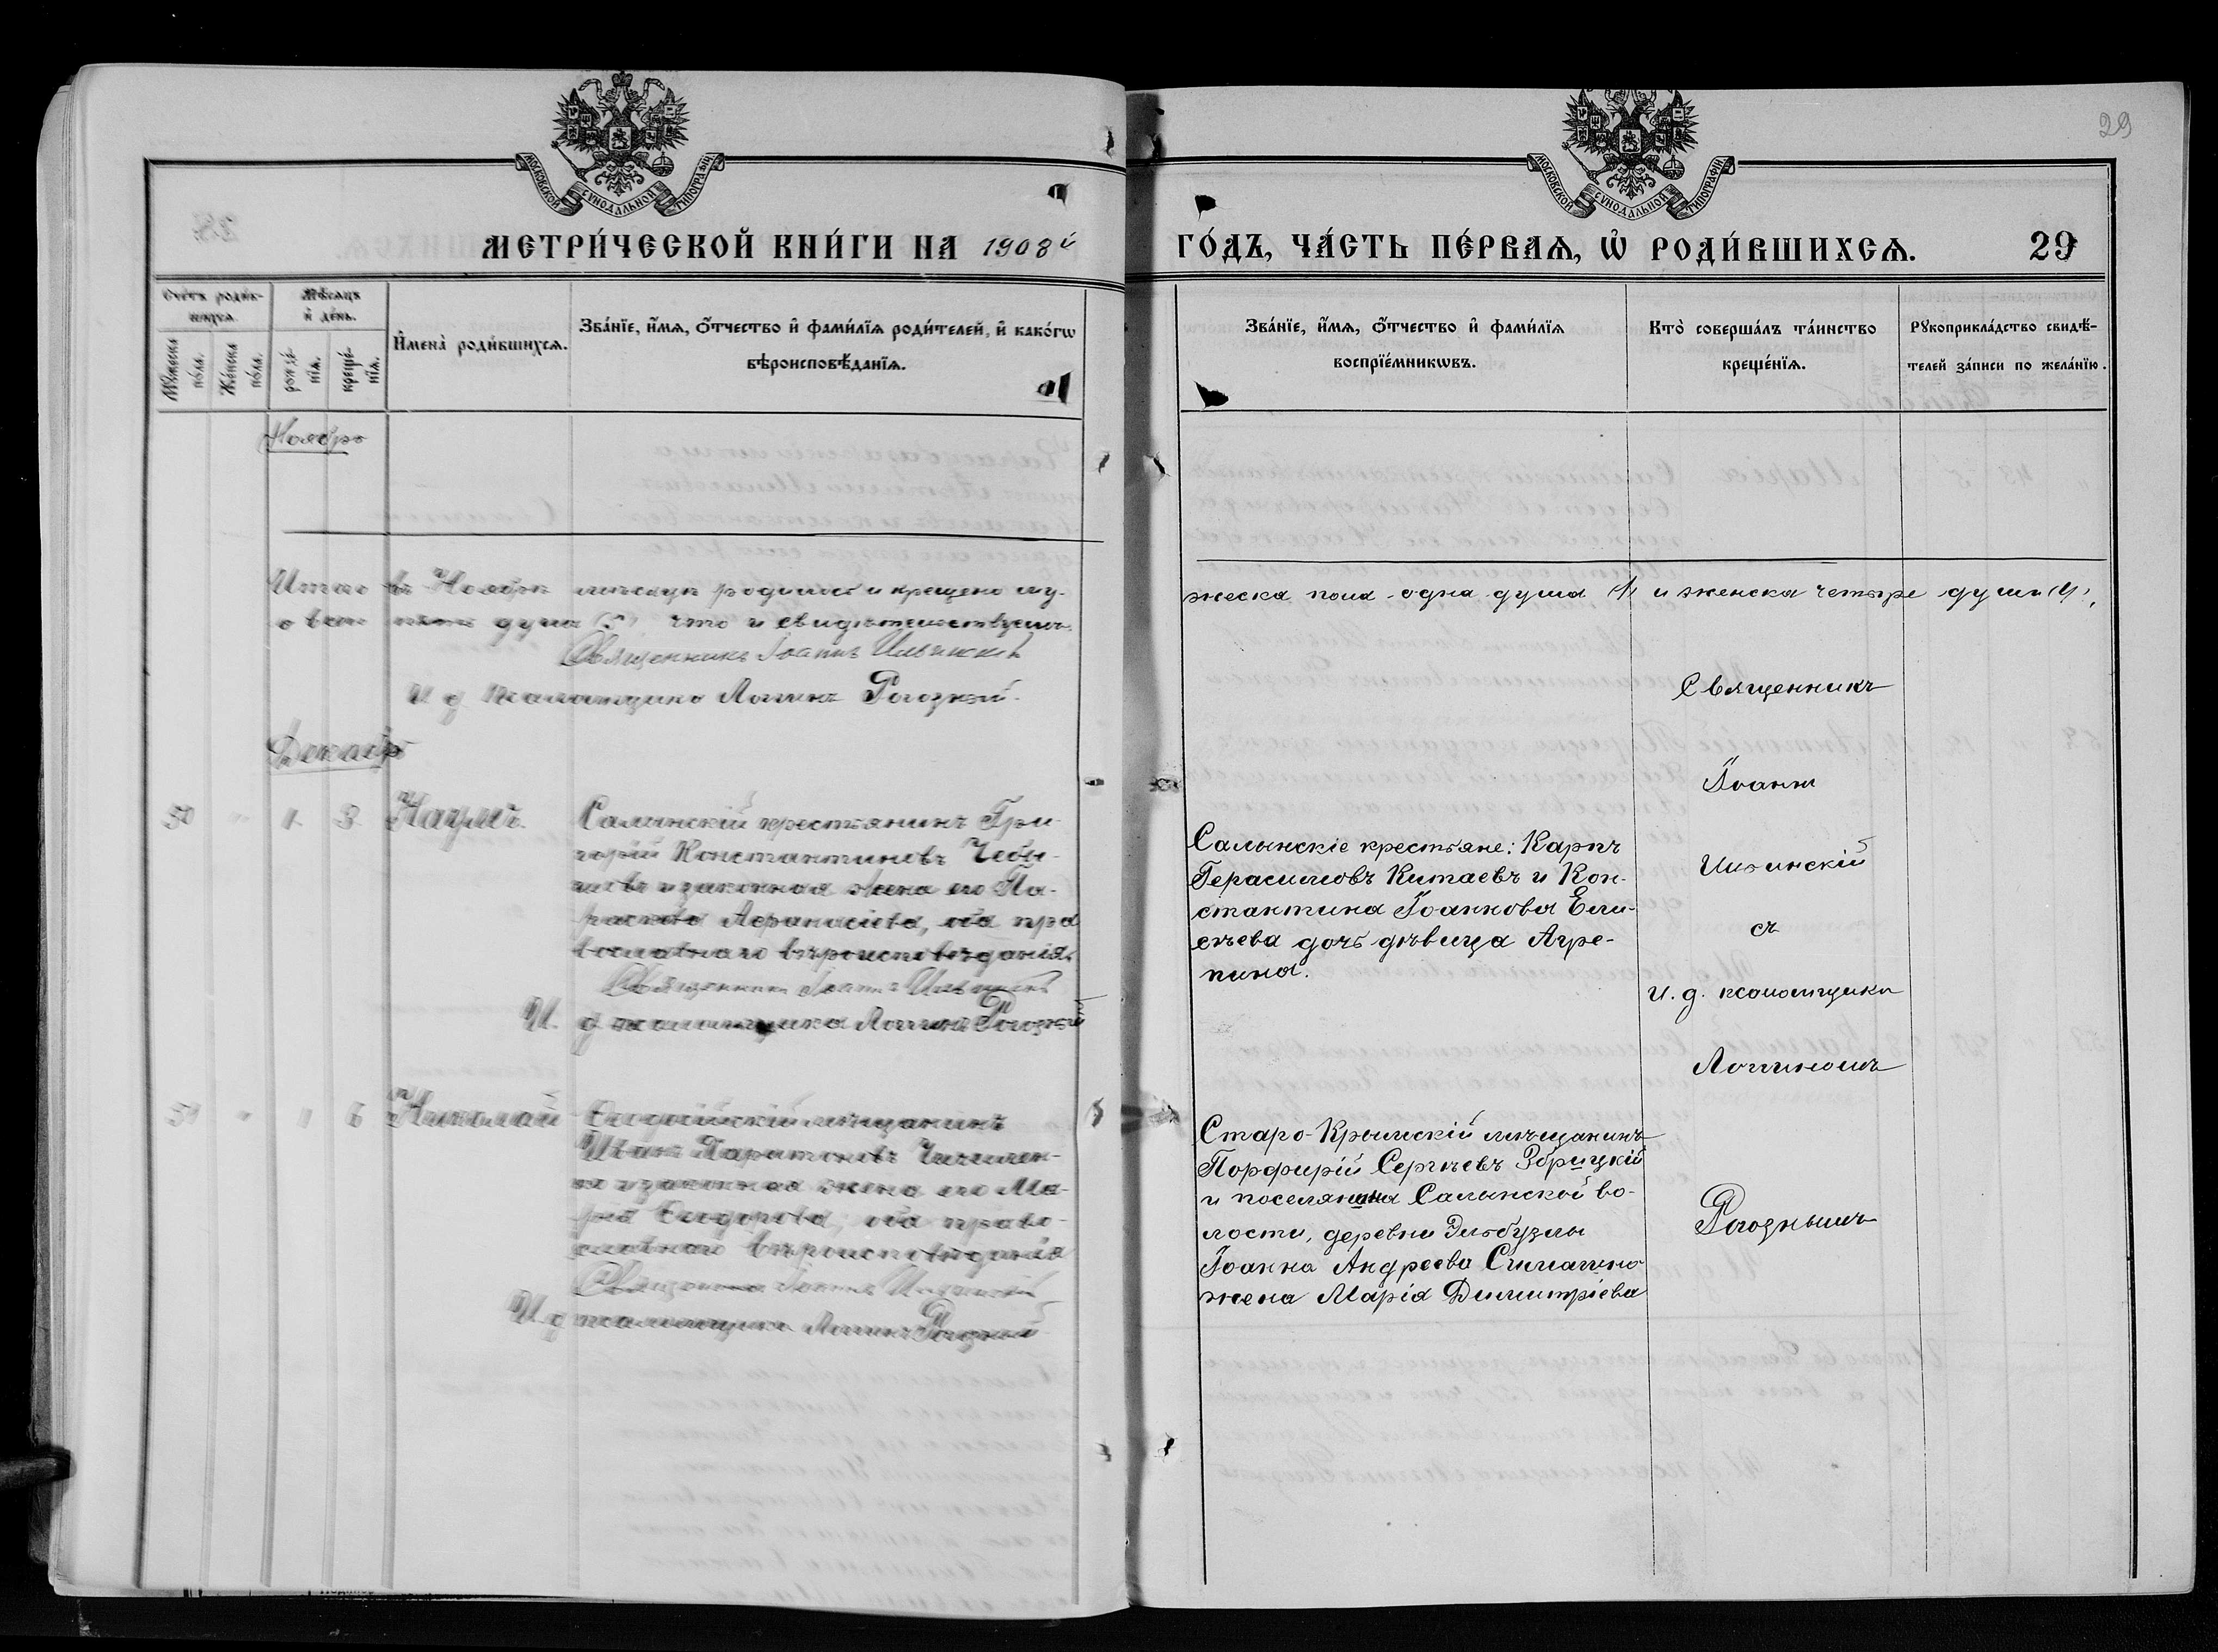 29
МОСКОВСКОЙ СѴНОДАЛЬНОЙ ТИПОГРАФІИ
МОСКОВСКОЙ СѴНОДАЛЬНОЙ ТИПОГРАФІИ
МЕТРИ́ЧЕСКОЙ КНИ́ГИ НА 1908й
ГО́ДЪ, ЧА́СТЬ ПЕ́РВАѦ, Ѡ҆ РОДИ́ВШИХСѦ. 29
Сче́тъ роди́вшихсѧ.
Мѣ́сѧцъ и҆ де́нь.
Мꙋ́жеска по́ла.
Же́нска по́ла.
рожде́нїѧ.
креще́нїѧ.
И҆мена̀ роди́вшихсѧ.
Зва́нїе, и҆́мѧ, ѻ҆́тчество и҆ фами́лїѧ роди́телей, и҆ како́гѡ
вѣроисповѣ́данїѧ.
Зва́нїе, и҆́мѧ, ѻ҆́тчество и҆ фами́лїѧ
воспрїе́мникѡвъ.
Кто̀ соверша́лъ та́инство
креще́нїѧ.
Рꙋкоприкла́дство свидѣ́-
телей за́писи по жела́нїю.
Ноябрь
Итого въ Ноябрѣ мѣсяцѣ родилось и крещено му-
жеска пола одна душа (1) и женска четыре души (4),
а всего пять душъ (5), что и свидѣтельствуемъ.
Священникъ Іоаннъ Ильинскій
И. д. псаломщика Логинъ Рогозный.
Декабрь
50 " 1. 3. Наумъ.
Салынскій крестьянинъ Гри-
горій Константиновъ
и законная жена его Па-
раскева Аѳанасіева, оба пра-
вославнаго вѣроисповѣданія.
Священникъ Іоаннъ Ильинскій
И. д. псаломщика Логинъ Рогозный
Салынскіе крестьяне: Карпъ
Герасимовъ Китаевъ и Кон-
стантина Іоаннова Ели-
сѣева дочь дѣвица Агре-
пина.
Священникъ
Іоаннъ
Ильинскій
съ
И. д. псаломщика
Логиномъ
Рогознымъ
51 " 1 6 Николай
Ѳеодосійскій мѣщанинъ
Иванъ Харитоновъ
и законная жена его Ма-
рія Ѳеодорова, оба право-
славнаго вѣроисповѣданія
Священникъ Іоаннъ Ильинскій
И. д. псаломщика Логинъ Рогозный
Старо-Крымскій мѣщанинъ
Порфирій Сергѣевъ Збрицкій
и поселянина Салынской во-
лости, деревни Эльбузлы
Іоанна Андреева Симашко
жена Марія Димитріева